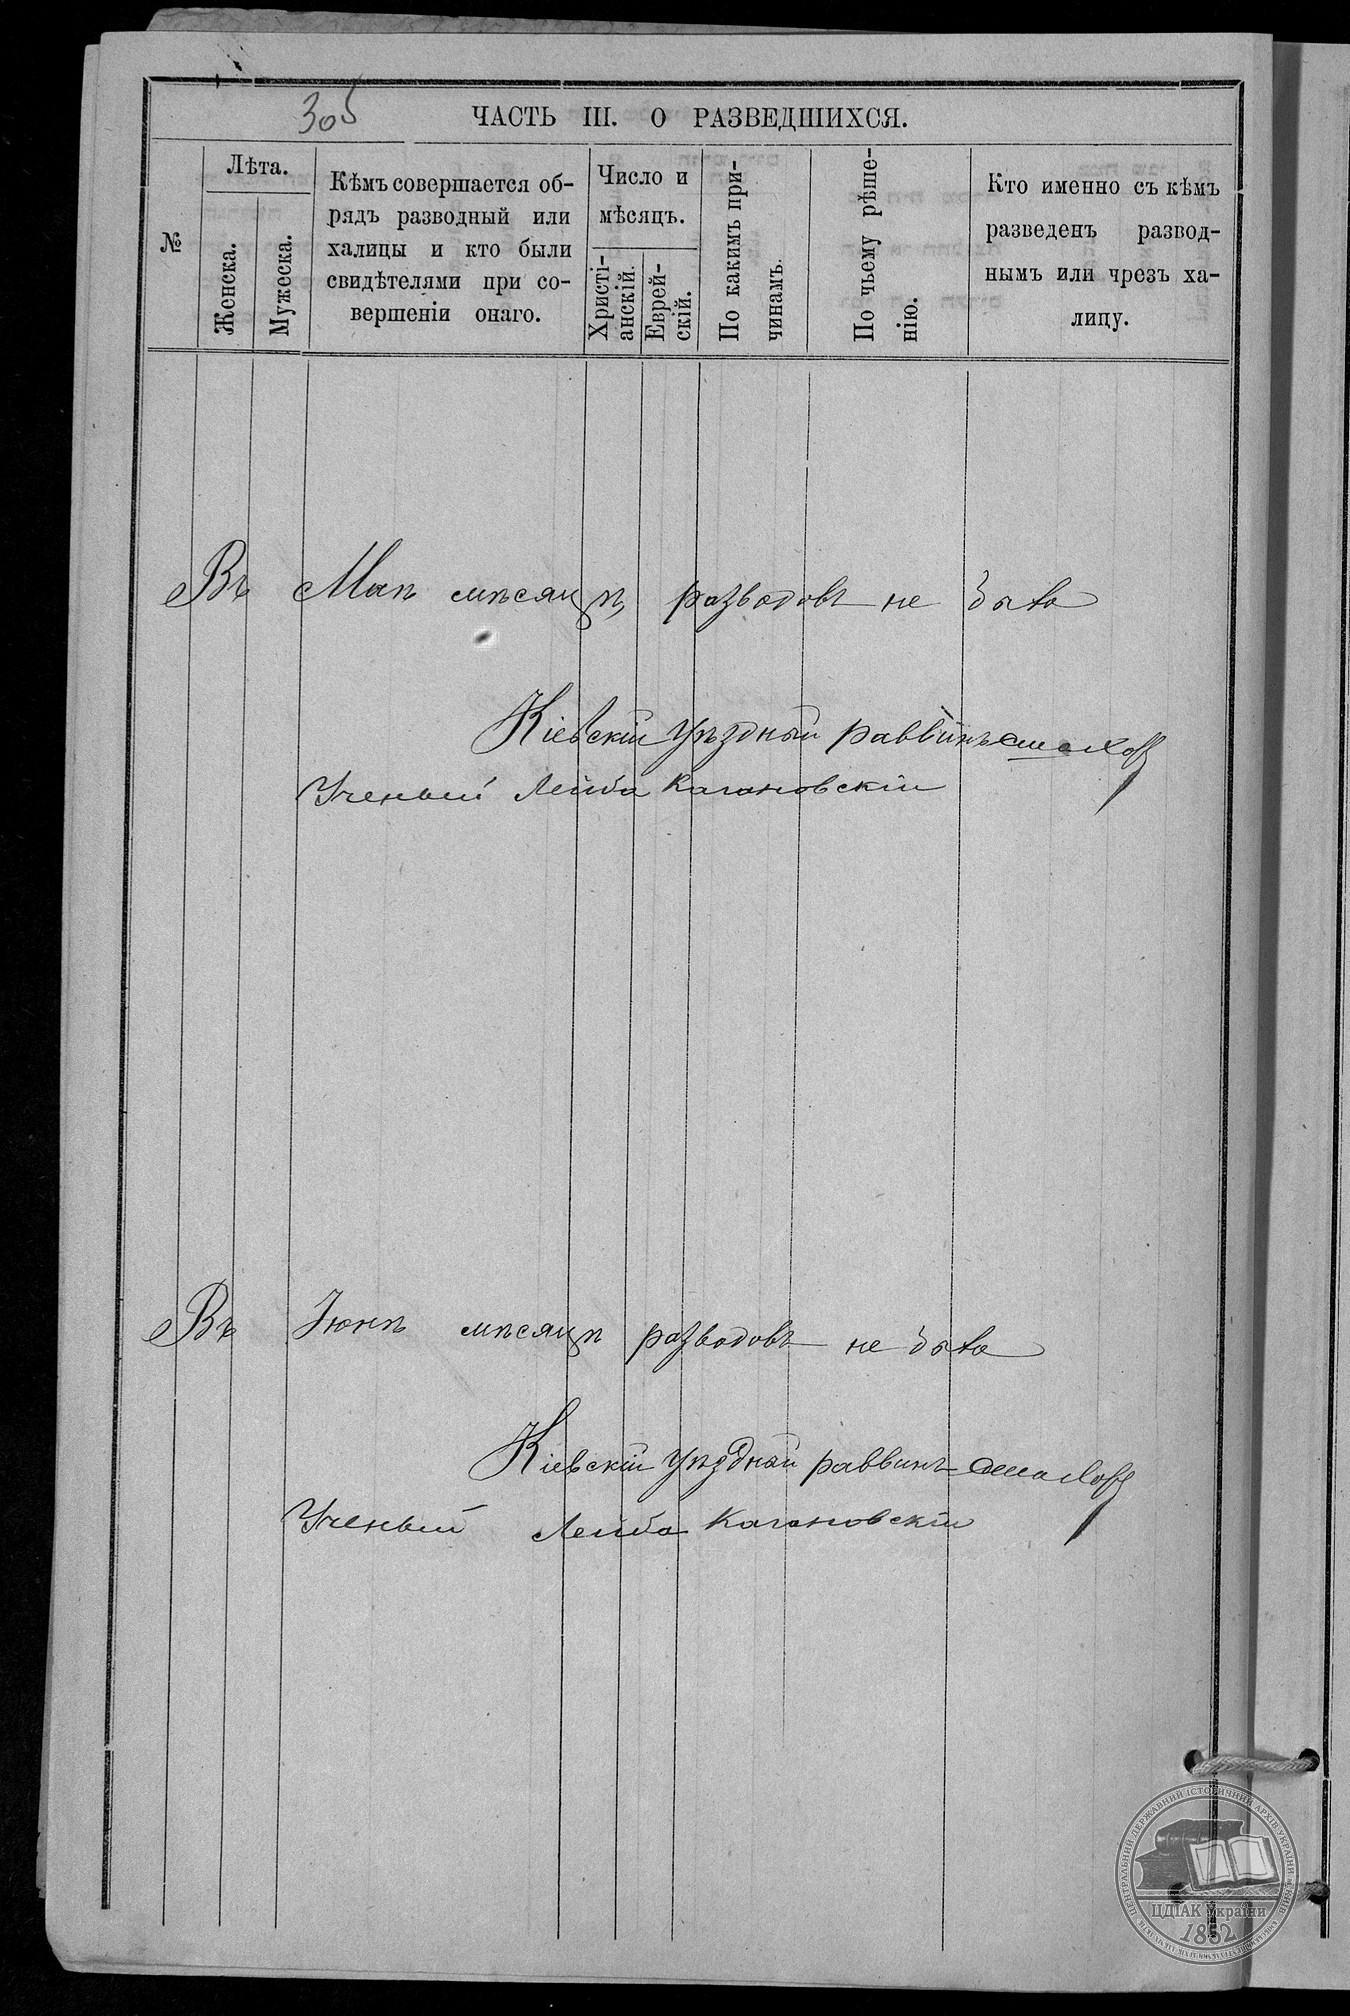 305
ЧАСТЬ III. О РАЗВЕДШИХСЯ.
№
Лѣта.
Женска.
Мужеска.
Кѣмъ совершается об-
рядъ разводный или
халицы и кто были
свидѣтелями при со-
вершеніи онаго.
Число и
мѣсяцъ.
Христі-
анскій.
Еврей-
скій.
По какимъ при-
чинамъ.
По чьему рѣше-
нію.
Кто именно съ кѣмъ
разведенъ развод-
нымъ или чрезъ ха-
лицу.
Въ Маѣ мѣсяцѣ разводовъ не было
Кіевскій Уѣздный раввинъ
Ученый Лейба Кагановскій
Въ Іюнѣ мѣсяцѣ разводовъ не было
Кіевскій Уѣздный раввинъ
Ученый Лейба Кагановскій
ЦЕНТРАЛЬНИЙ ДЕРЖАВНИЙ ІСТОРИЧНИЙ АРХІВ УКРАЇНИ, М. КИЇВ
ЦДІАК України
1852